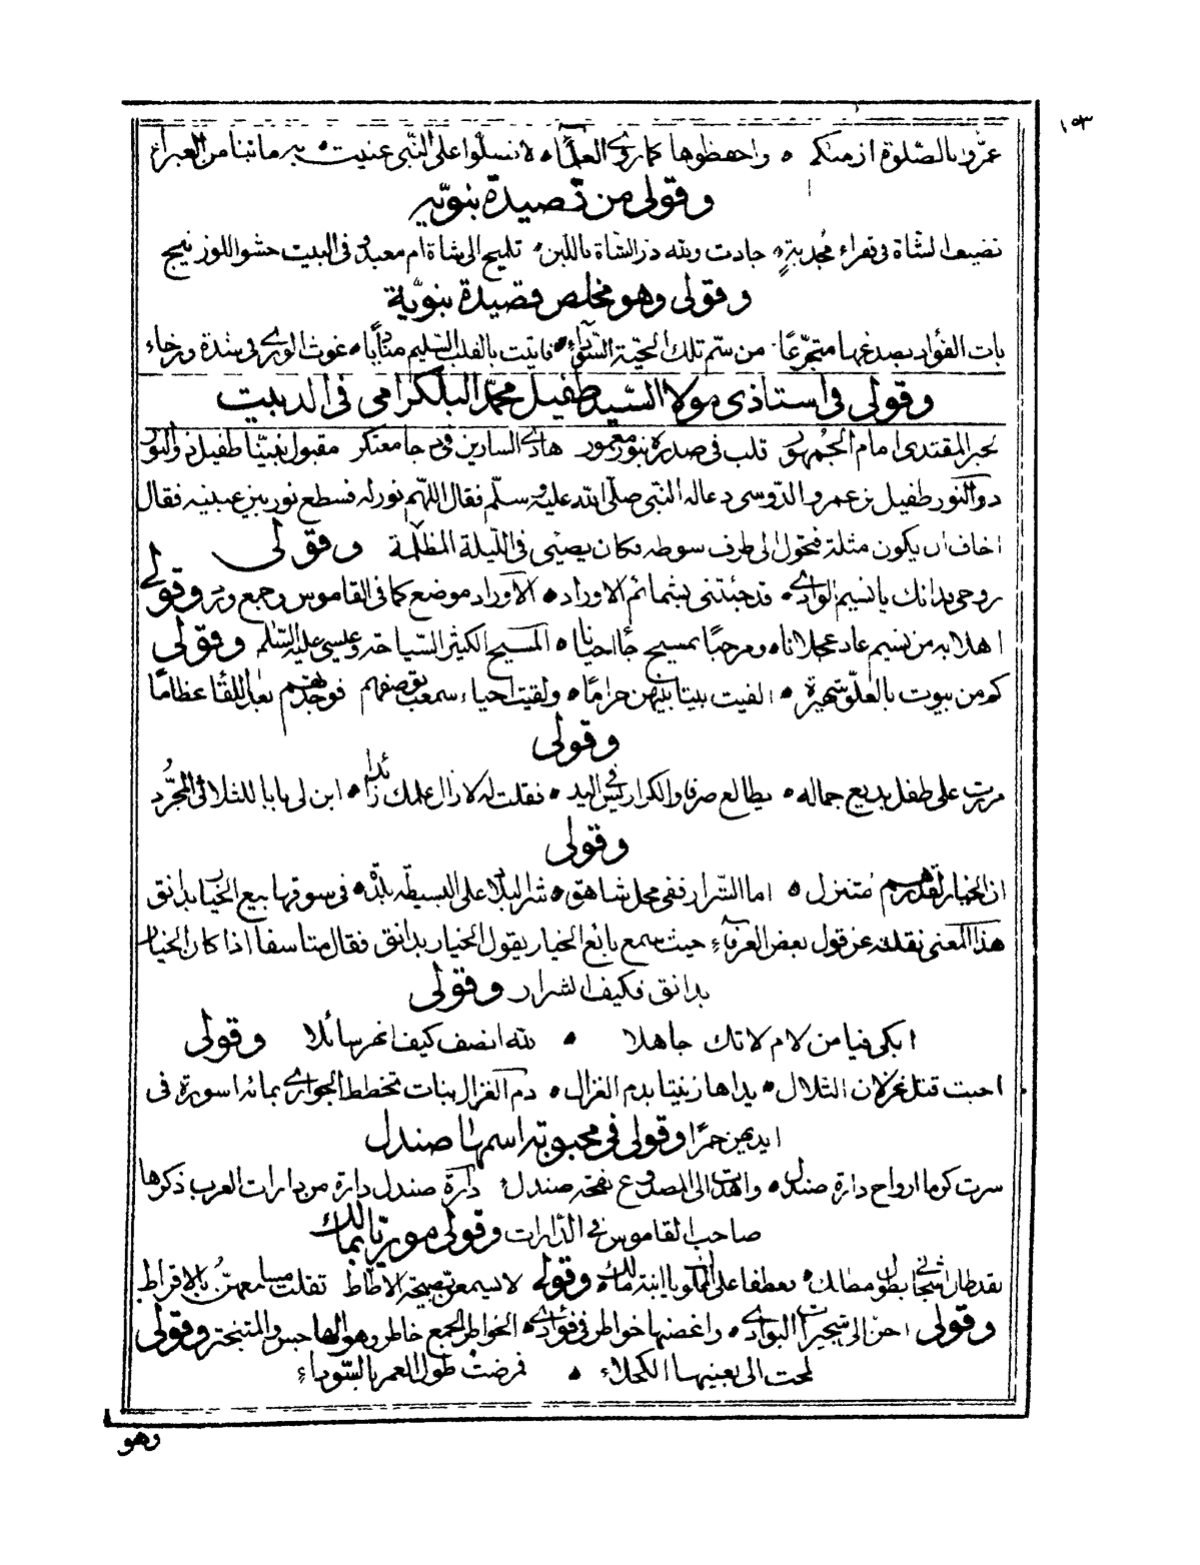 ١٥٣
عمروا بالصلوة ازمنتكم ٥ واحفظوها كما روى العلماء ٥ لا تسلوا على النبي عنيت ٥ به ما تبنا من العبراء
وقولى من قصيدة نبوية
نضبعا لشاة فى قفراء مجدبة ٥ جادت ولله در الشاة باللبن ٥ تلميح الى شاة ام معبد وفى البيت حشو اللوزينج
وقولى وهو مخلص قصيدة نبوية
بات الفؤاد بصدغها متجرعا من سم تلك الحية السوداء ٥ فاتيت بالقلب السليم متأدبا ٥ غوث الورى فى شدة ورخاء
وقولى فى استاذى مولانا السيد طفيل محمد البلكرامى فى الدبيت
نحبر المقتدى امام الجمهور قلب فى صدره بنور معمور هادى السارين فى دجا معتكر مقبول نبينا طفيل ذوالنور
ذوالنور طفيل بن عمرو الدوسى دعا له النبى صلى الله عليه وسلم فقال اللهم نور له فسطع نور بين عينيه فقال
اخاف ان يكون مثلة فتحول الى طرف سوطه فكان يضيئ فى الليلة المظلمة وقولى
روحى فدائك يا نسيم الوادى ٥ قد جئتنى بشمائم الاوراد ٥ الاوراد موضع كما فى القاموس وجمع ورد وقولى
اهلا به من نسيم عاد عجلانا ٥ ومرحبا بمسيح جاء احيانا ٥ المسيح الكثير السياحة وعيسى عليه السلم وقولى
كم من بيوت بالعلو شهيرة ٥ الفيت بيتا بينهن حراما ٥ ولقيت احياء سمعت بوصفهم فوجدتهم بعد اللقا عظاما
وقولى
مررت على طفل بديع جماله ٥ يطالع صرفا والكراريس فى اليد ٥ فقلت له لا زال علمك زائدا ٥ ابن لى بابا للثلاثى المجرد
وقولى
ان الخيار لقدرهم متنزل ٥ اما الشرار ففى محل شاهق ٥ شر البلاد على البسيطة بلدة ٥ فى سوقها بيع الخيار بدانق
هذا المعنى نقلته عن قول بعض العرفاء حيث سمع بائع الخيار يقول الخيار بدانق فقال متاسفا اذا كان الخيار
بدانق فكيف الشرار وقولى
ابكى فيا من لام لا تك جاهلا ٥ لله انصف كيف انهر سائلا وقولى
احبت قتل غزلان التلال ٥ يداها زينتا بدم الغزال ٥ دم الغزال نبات تخطط الجوارى بمائه اسورة فى
ايديهن حمرا وقولى فى محبوبة اسمها صندل
سرت كرما ارواح دارة صندل ٥ واهدت الى المصدوع نفحة صندل دارة صندل دارة من دارات العرب ذكرها
صاحب القاموس فى الدارات وقولى موريا بمالك
لقد طال اشجانى بطول مطالك ٥ تعطفا على المملوك يا ابنة مالك وقوله لا تسيمعن نصيحة الاطاط ثقلت مسامعهن بالاقراط
وقولى احن الى شجيرات البوادى ٥ واغصنها خواطر فى فؤادى ٥ الخواطر الجمع خاطر وهو الهاجس والمتبختر وقولى
لمحت الى بعينها الكحلاء ٥ فرضت طول العمر بالسوداء
وهو